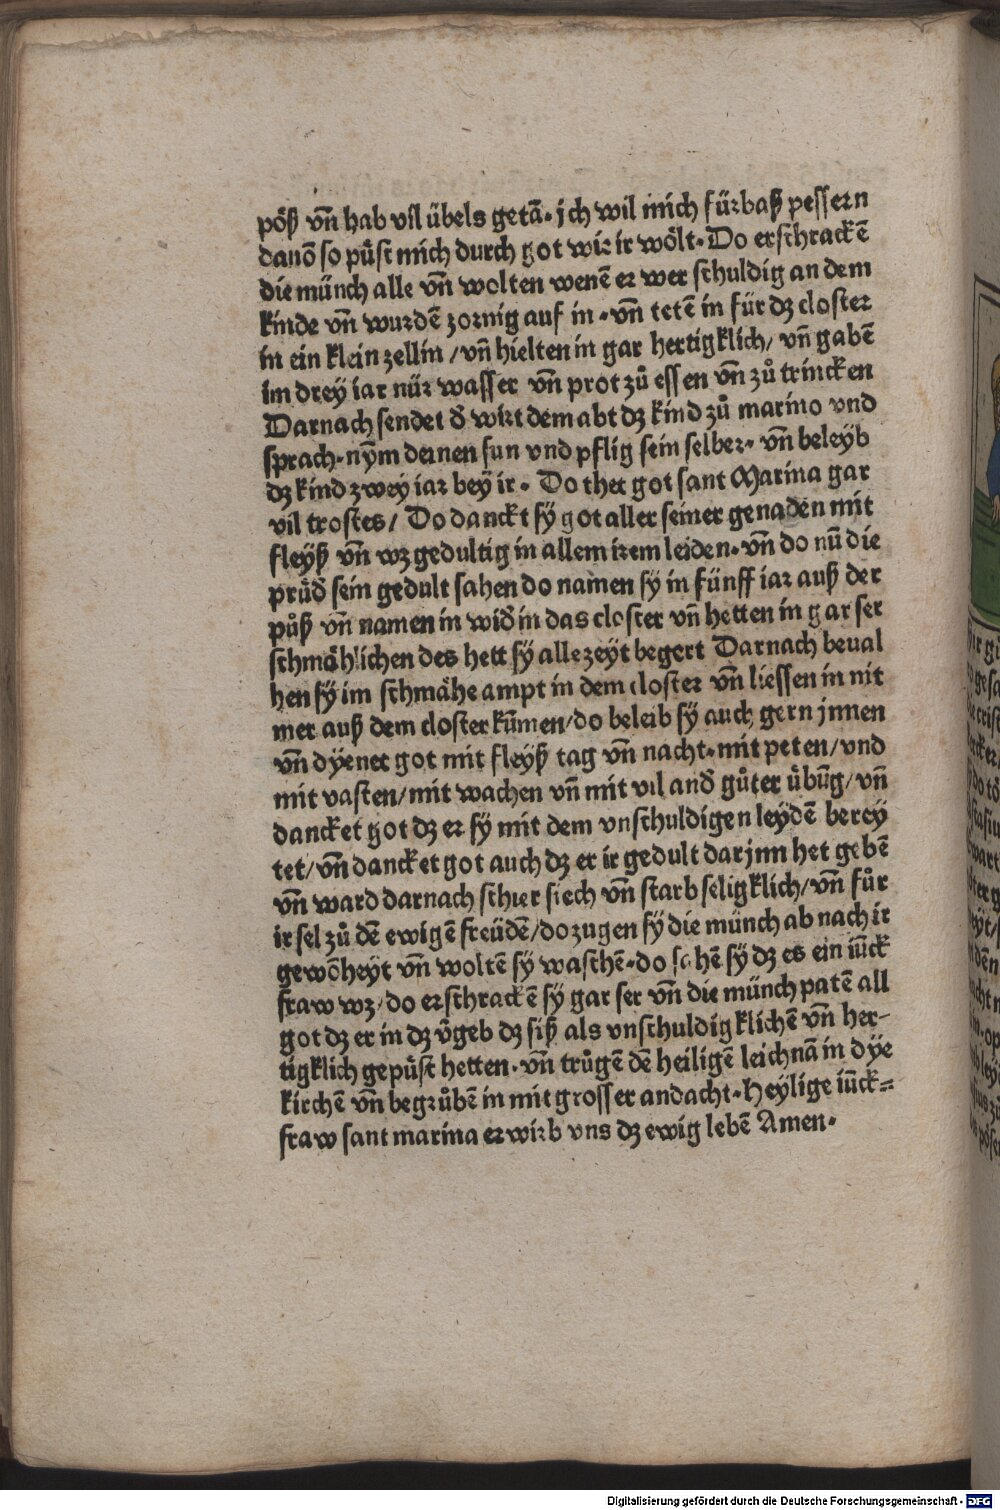 pöß vn̄ hab vil übels getā. jch wil mich fürbaß pessern
dauō so půst mich durch got wir ir wölt. Do erschrackē
die münch alle vn̄ wolten wenē er wer schuldig an dem
kinde vn̄ wurdē zornig auf in. vn̄ tetē in für dz closter
in ein klein zellin / vn̄ hielten in gar hertigklich / vn̄ gabē
im drey iar nür wasser vn̄ prot zů essen vn̄ zů trincken
Darnach sendet d̄ wirt dem abt dz kind zů marino vnd
sprach. nÿm deinen sun vnd pflig sein selber. vn̄ beleyb
dz kind zwey iar bey ir. Do thet got sant Marina gar
vil trostes / Do danckt sÿ got aller seiner genaden mit
fleÿß vn̄ wz gedultig in allem irem leiden. vn̄ do nū die
prüd̄ sein gedult sahen do namen sÿ in fünff iar auß der
půß vn̄ namen in wid̄ in das closter vn̄ hetten in gar ser
schmählichen des hett sÿ allezeyt begert Darnach beual
hen sÿ im schmähe ampt in dem closter vn̄ liessen in nit
mer auß dem closter kūmen / do beleib sÿ auch gern jnnen
vn̄ dyenet got mit fleyß tag vn̄ nacht. mit peten / vnd
mit vasten / mit wachen vn̄ mit vil and̄ gůter übūg / vn̄
dancket got dz er sÿ mit dem vnschuldigen leydē berey
tet / vn̄ dancket got auch dz er ir gedult darjnn het gebē
vn̄ ward darnach schier siech vn̄ starb seligklich / vn̄ fůr
ir sel zů dē ewigē freüdē / do zugen sÿ die münch ab nach ir
gewōheyt vn̄ woltē sÿ waschē. do sahē sÿ dz es ein iūck
fraw wz / do erschrackē sÿ gar ser vn̄ die münch patē all
got dz er in dz v̄geb dz siß als vnschuldigklichē vn̄ her-
tigklich gepůst hetten. vn̄ trůgē dē heiligē leichnā in dye
kirchē vn̄ begrůbē in mit grosser andacht. Heylige iūck=
fraw sant marina erwirb vns dz ewig lebē Amen.
Digitalisierung gefördert durch die Deutsche Forschungsgemeinschaft - DFG